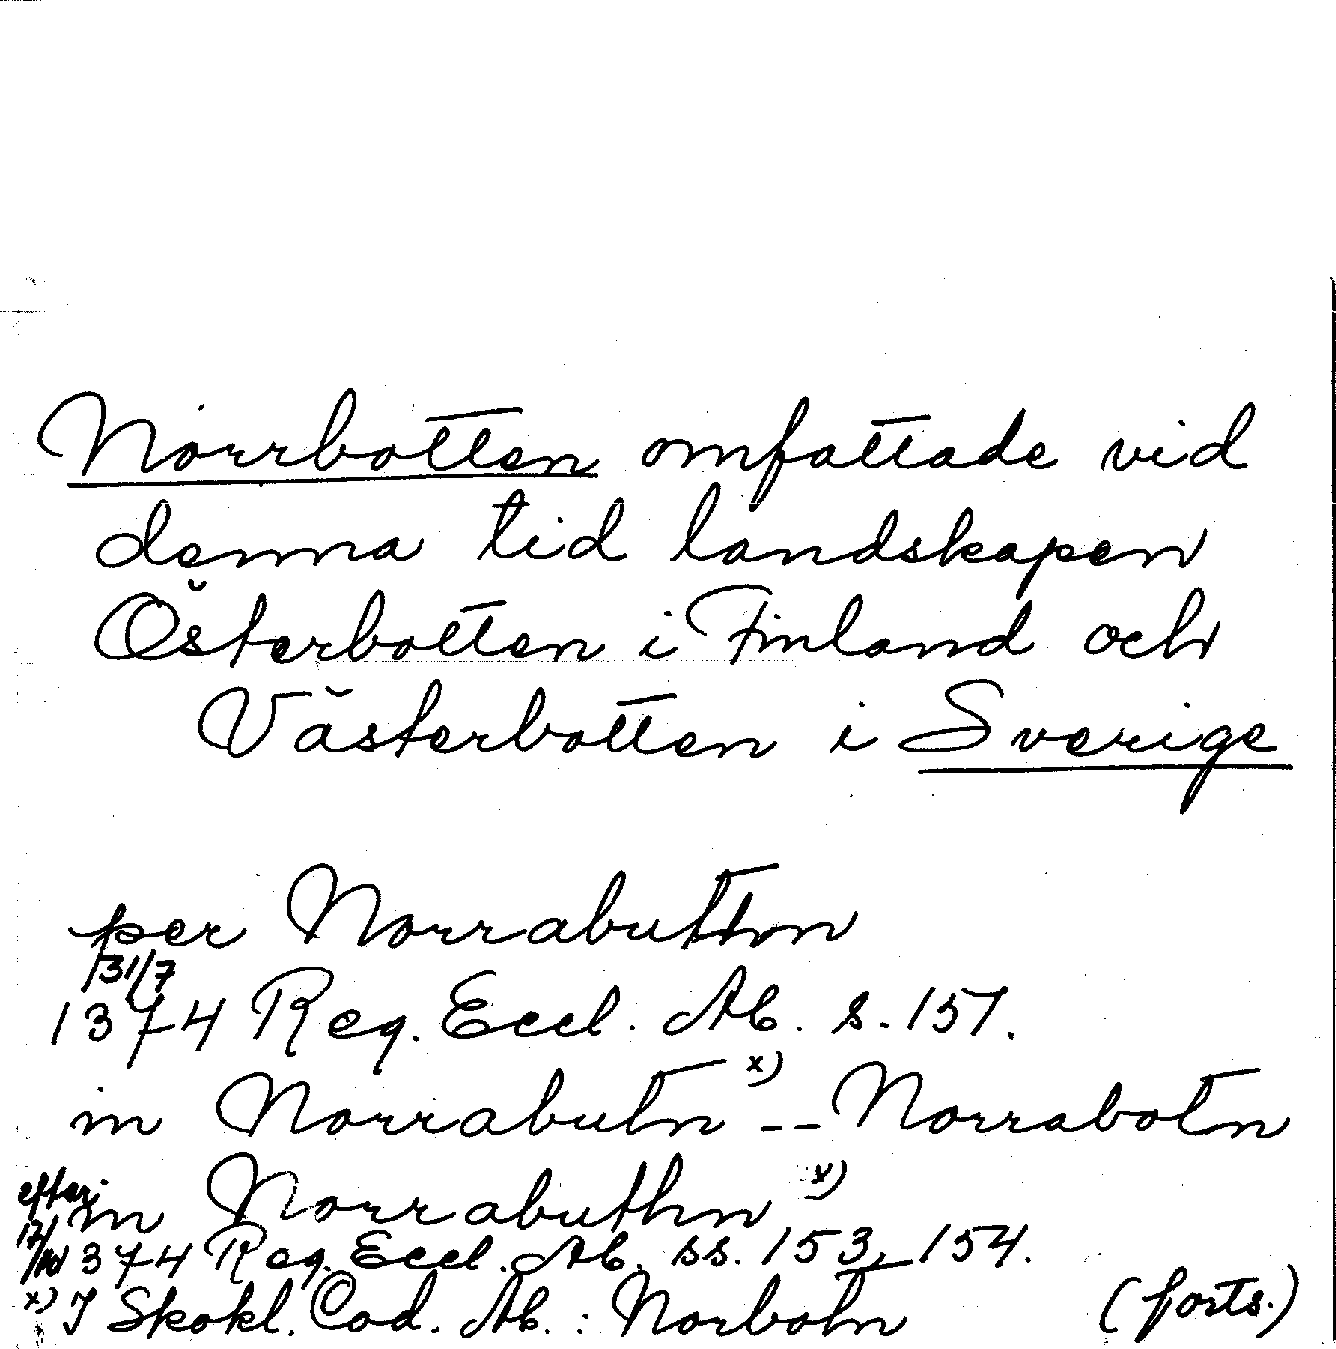 Norrbotten omfattade vid
denna tid landskapen
Österbotten i Finland och
Västerbotten i Sverige
per Norrabuttnn
31/7
1374 Reg. Eccl. Ab. s. 157.
in Norrabutn x) -- Norrabotn
efter in Norrabuthn x)
12/10 1374 Reg. Eccl. Ab. ss. 153, 154.
x) I Skokl. Cod. Ab. : Norbotn (forts.)